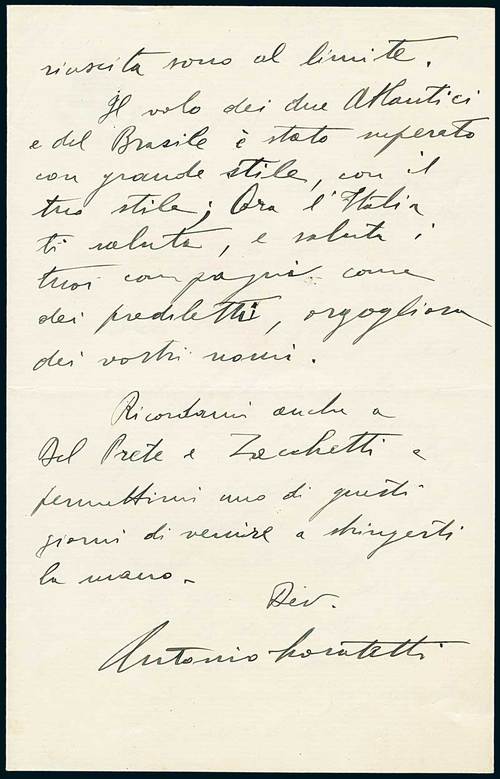 riuscita sono al limite.
Il volo dei due Atlantici
e del Brasile è stato superato
con grande stile, con il
tuo stile; Ora l'Italia
ti saluta, e saluta i
tuoi compagni come
dei prediletti, orgogliosa
dei vostri nomi.
Ricordami anche a
Del Prete e Zacchetti e
permettimi uno di questi
giorni di venire a stringerti
la mano.
Dev.
Antonio Locatelli